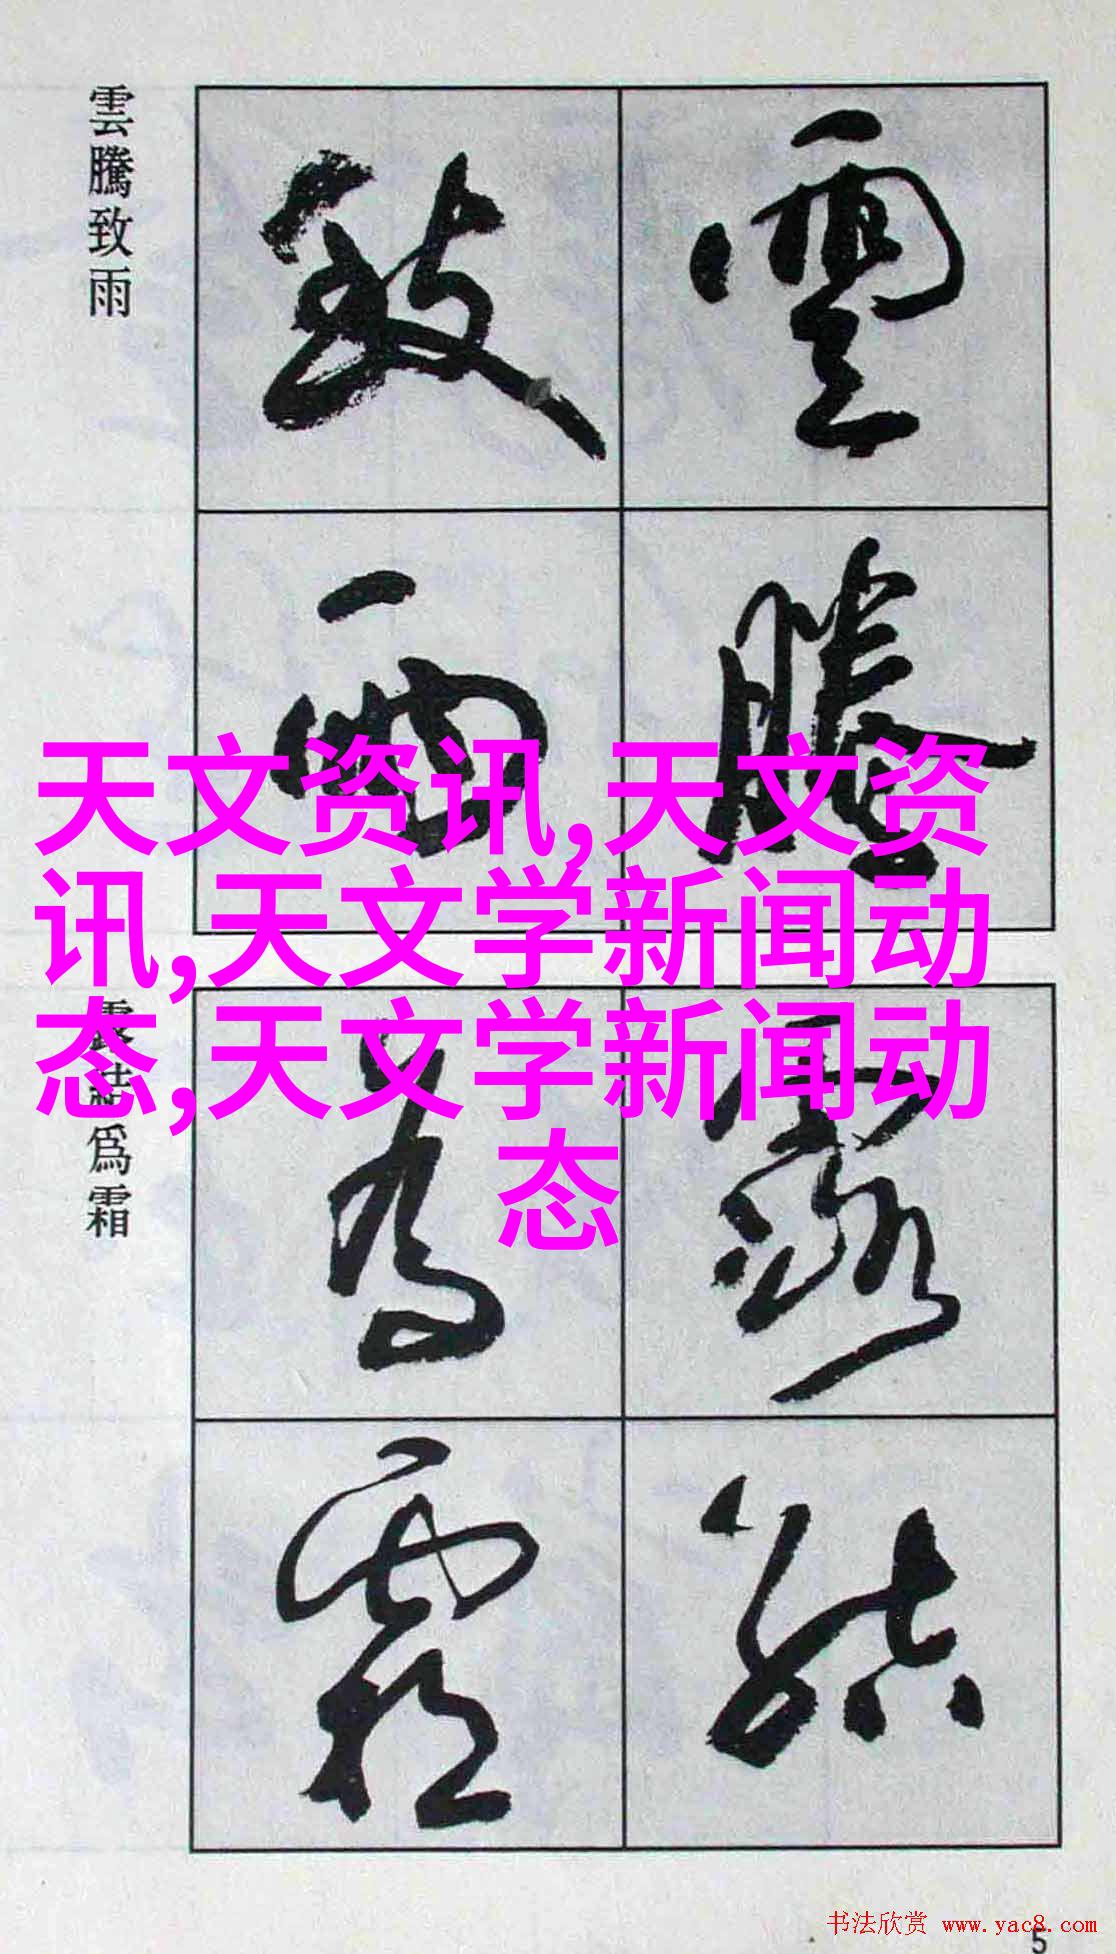 雲騰致雨
雲騰
致雨
天文资讯,天文资
讯,天文学新闻动
态,天文学新闻动
态
露結為霜
露結
為霜
书法欣赏 www.yac8.com
5